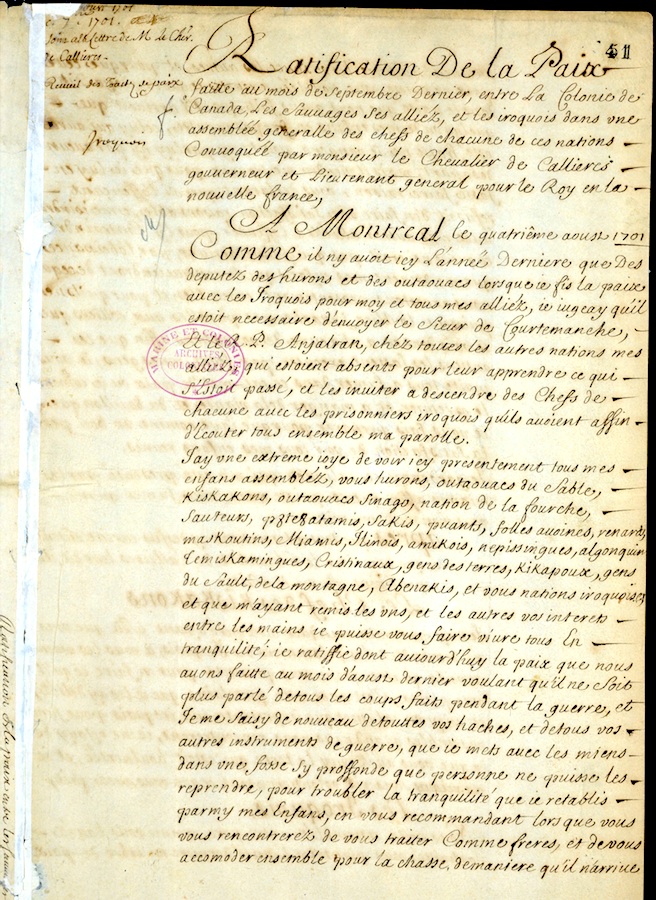 1701
Join a la Lettre de M. le Cher.
de Callieres
Recueil des Traitez de paix
Iroquois
511
Ratification De la Paix
faitte au mois de septembre Dernier, entre La Colonie de
Canada, Les Sauvages ses alliéz, et les iroquois dans vne
assemblée generalle des chefs de chacune de ces nations
Convoquée par monsieur le Chevalier de Callieres
gouuerneur et Lieutenant general pour le Roy en la
nouuelle france,
A Montreal le quatriême aoust 1701
Comme il ny auoit icy L'anneé Derniere que Des
deputéz des hurons et des outaouacs lorsque ie fis la paix
auec les Iroquois pour moy et tous mes alliéz, ie iugeay qu'il
estoit necessaire d'enuoyer le Sieur de Courtemanche,
Et le R. P. Anjalran, chéz toutes les autres nations mes
alliéz, qui estoient absents pour leur apprendre ce qui
s'estoit passé, et les inuiter a descendre des Chefs de
chacune auec les prisonniers iroquois qu'ils auoient affin
d'Ecouter tous ensemble ma parolle.
J'ay vne extreme ioye de voir icy presentement tous mes
enfans assembléz, vous hurons, outaouacs du Sable,
Kiskakons, outaouacs Sinago, nation de la fourche,
Sauteurs, p8te8atamis, Sakis, puants, folles auoines, renards,
maskoutins, Miamis, Ilinois, amikois, nepissingues, algonquins
Temiskamingues, Cristinaux, gens des terres, Kikapoux, gens
du Sault, de la montagne, Abenakis, et vous nations iroquoises
et que m'ayant remis les vns, et les autres vos interets
entre les mains ie puisse vous faire viure tous En
tranquilité; ie ratiffie dont auiourd'huy la paix que nous
auons faitte au mois d'aoust dernier voulant qu'il ne soit
plus parlé de tous les coups faits pendant la guerre, et
Je me saisy de nouueau de touttes vos haches, et de tous vos
autres instruments de guerre, que ie mets auec les miens
dans vne fosse sy proffonde que personne ne puisse les
reprendre, pour troubler la tranquilité que ie retablis
parmy mes Enfans, en vous recommandant lors que vous
vous rencontrerez de vous traiter Comme freres, et de vous
accomoder ensemble pour la chasse, de maniere qu'il n'arriue
MARINE ET COLONIES
ARCHIVES
COLONIALES
Ratification de la paix entre les sauuages